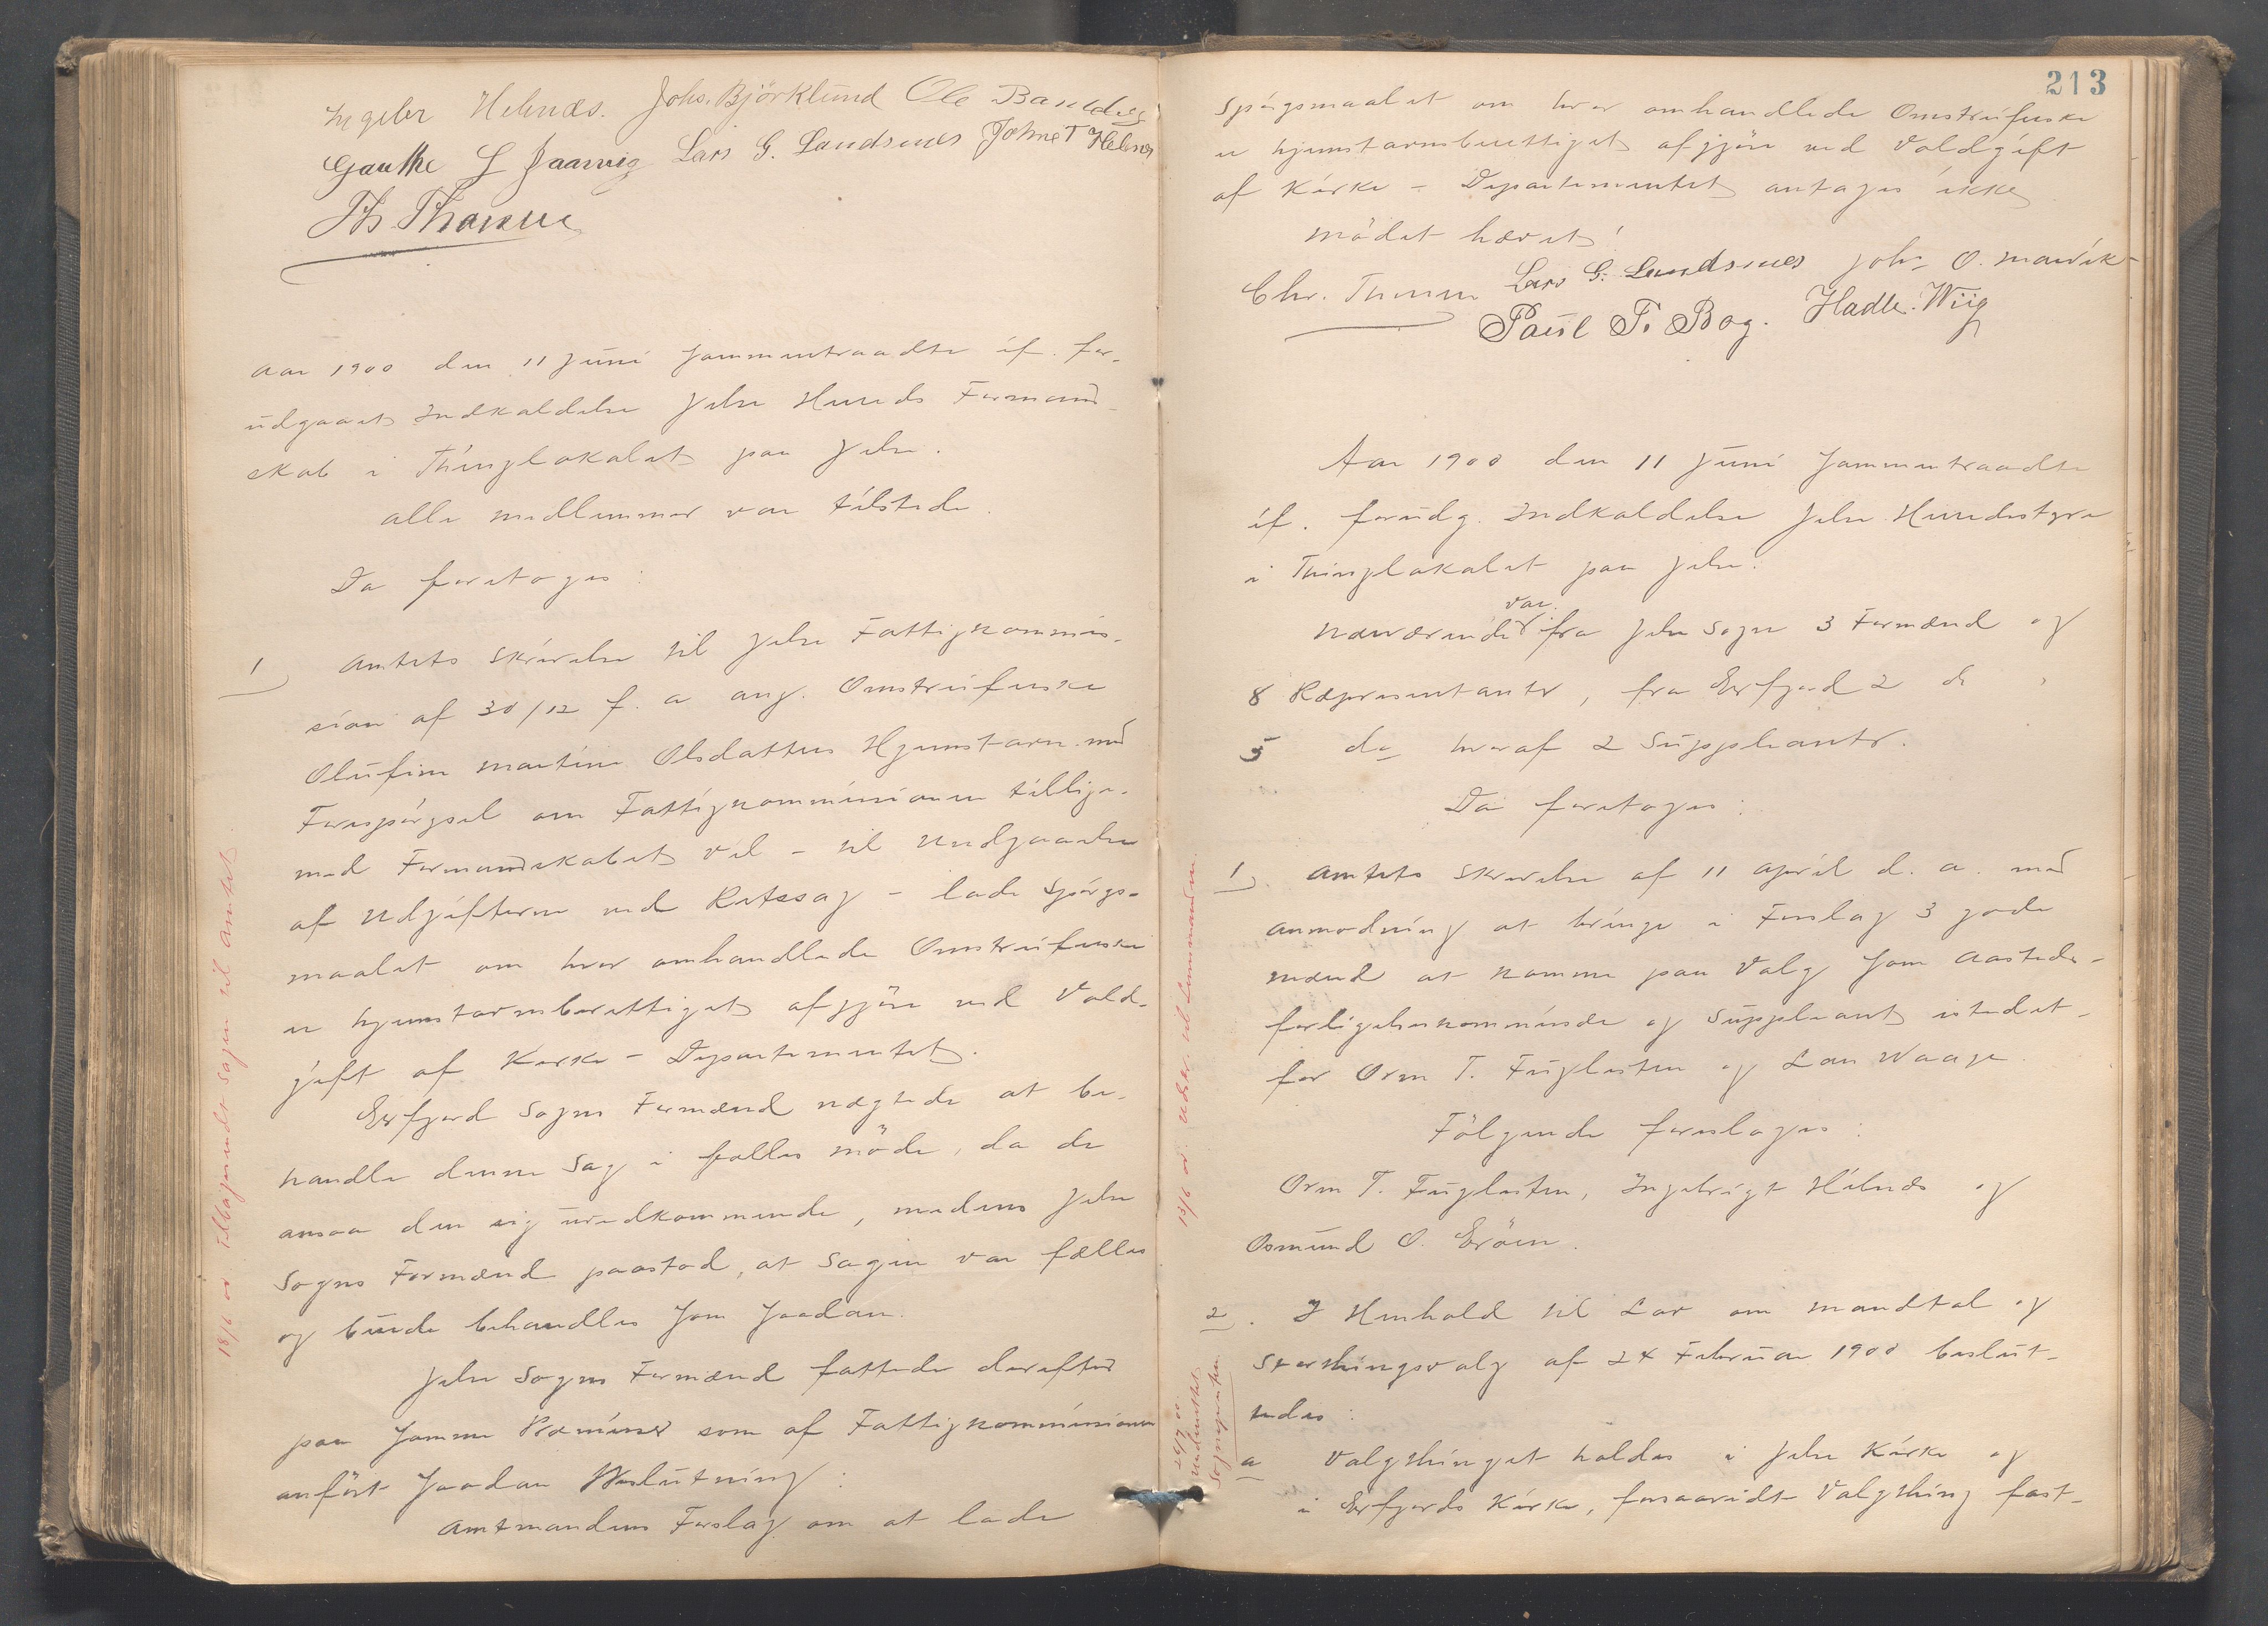 Ingebr Helnæs. Johs. Björklund Ole
Gauthe L Jaarvig Lars G. Landsnes
Th. Thorsen
Aar 1900 den 11 Juni sammentraadte if. for-
udgaaet Indkaldelse Jelse Herreds Formand-
skab i Thinglokalet paa Jelse.
Alle medlemmer var tilstede.
Da foretoges:
1 Amtets Skrivelse til Jelse Fattigkommis-
sion af 30/12 f. a ang. Omstreiferske
Olufine Martine Olsdatters Hjemstavn med
Forespørgsel om Fattigkommissionen tillige-
med Formandskabet vil - til Undgaaelse
af Udgifterne ved Retssag - lade Spörgs-
maalet om hvor omhandlede Omstreiferske
er hjemstavnsberettiget afgjöre ved Vold-
gift af Kirke - Departementet.
Erfjord Sogns Formænd nægtede at be-
handle denne Sag i fælles möde, da de
ansaa den sig uvedkommende, medens Jelse
Sogns Formænd paastod, at Sagen var fælles
og burde behandles som saadan.
Jelse Sogns Formænd fattede derefter
paa samme Præmisser som af Fattigkommissionen
anfört saadan Beslutning:
Amtmandens Forslag om at lade
18/6 00 Tilbagesendt Sagen til Amtet
213
Spörgsmaalet om hvor omhandlede Omstreiferske
er hjemstavnsberettiget afgjöre ved Voldgift
af Kirke - Departementet antages ikke
mödet hævet!
Chr. Lars G. Landsnes Johs O.
Paul T. Bog. Hadle Wiig
Aar 1900 den 11 Juni sammentraadte
if. forudg. Indkaldelse Jelse Herredsstyre
i Thinglokalet paa Jelse.
var
Nærværende fra Jelse Sogn 3 Formænd og
8 Repræsentanter, fra Erfjord 2 do "
5 do hvoraf 2 Suppleanter.
Da foretoges:
1 Amtets Skrivelse af 11 April d. a. med
anmodning at bringe i Forslag 3 gode
mænd at komme paa Valg som Aasteds-
forligelseskommissær og Suppleant istedet-
for Orm T. Fuglesten og Lars Waage.
Fölgende foreslages:
Orm T. Fuglesten, Ingebrigt Helnæs og
Osmund O. Eröen.
2. I Henhold til Lov om mandtal og
Storthingsvalg af 24 Februar 1900 beslut-
tedes:
a Valgthinget holdes i Jelse Kirke og
i Erfjords Kirke, forsaavidt Valgthing fast-
13/6 00 Udskr. til Lensmanden
24/7 00
Underrettet
Sognepresten